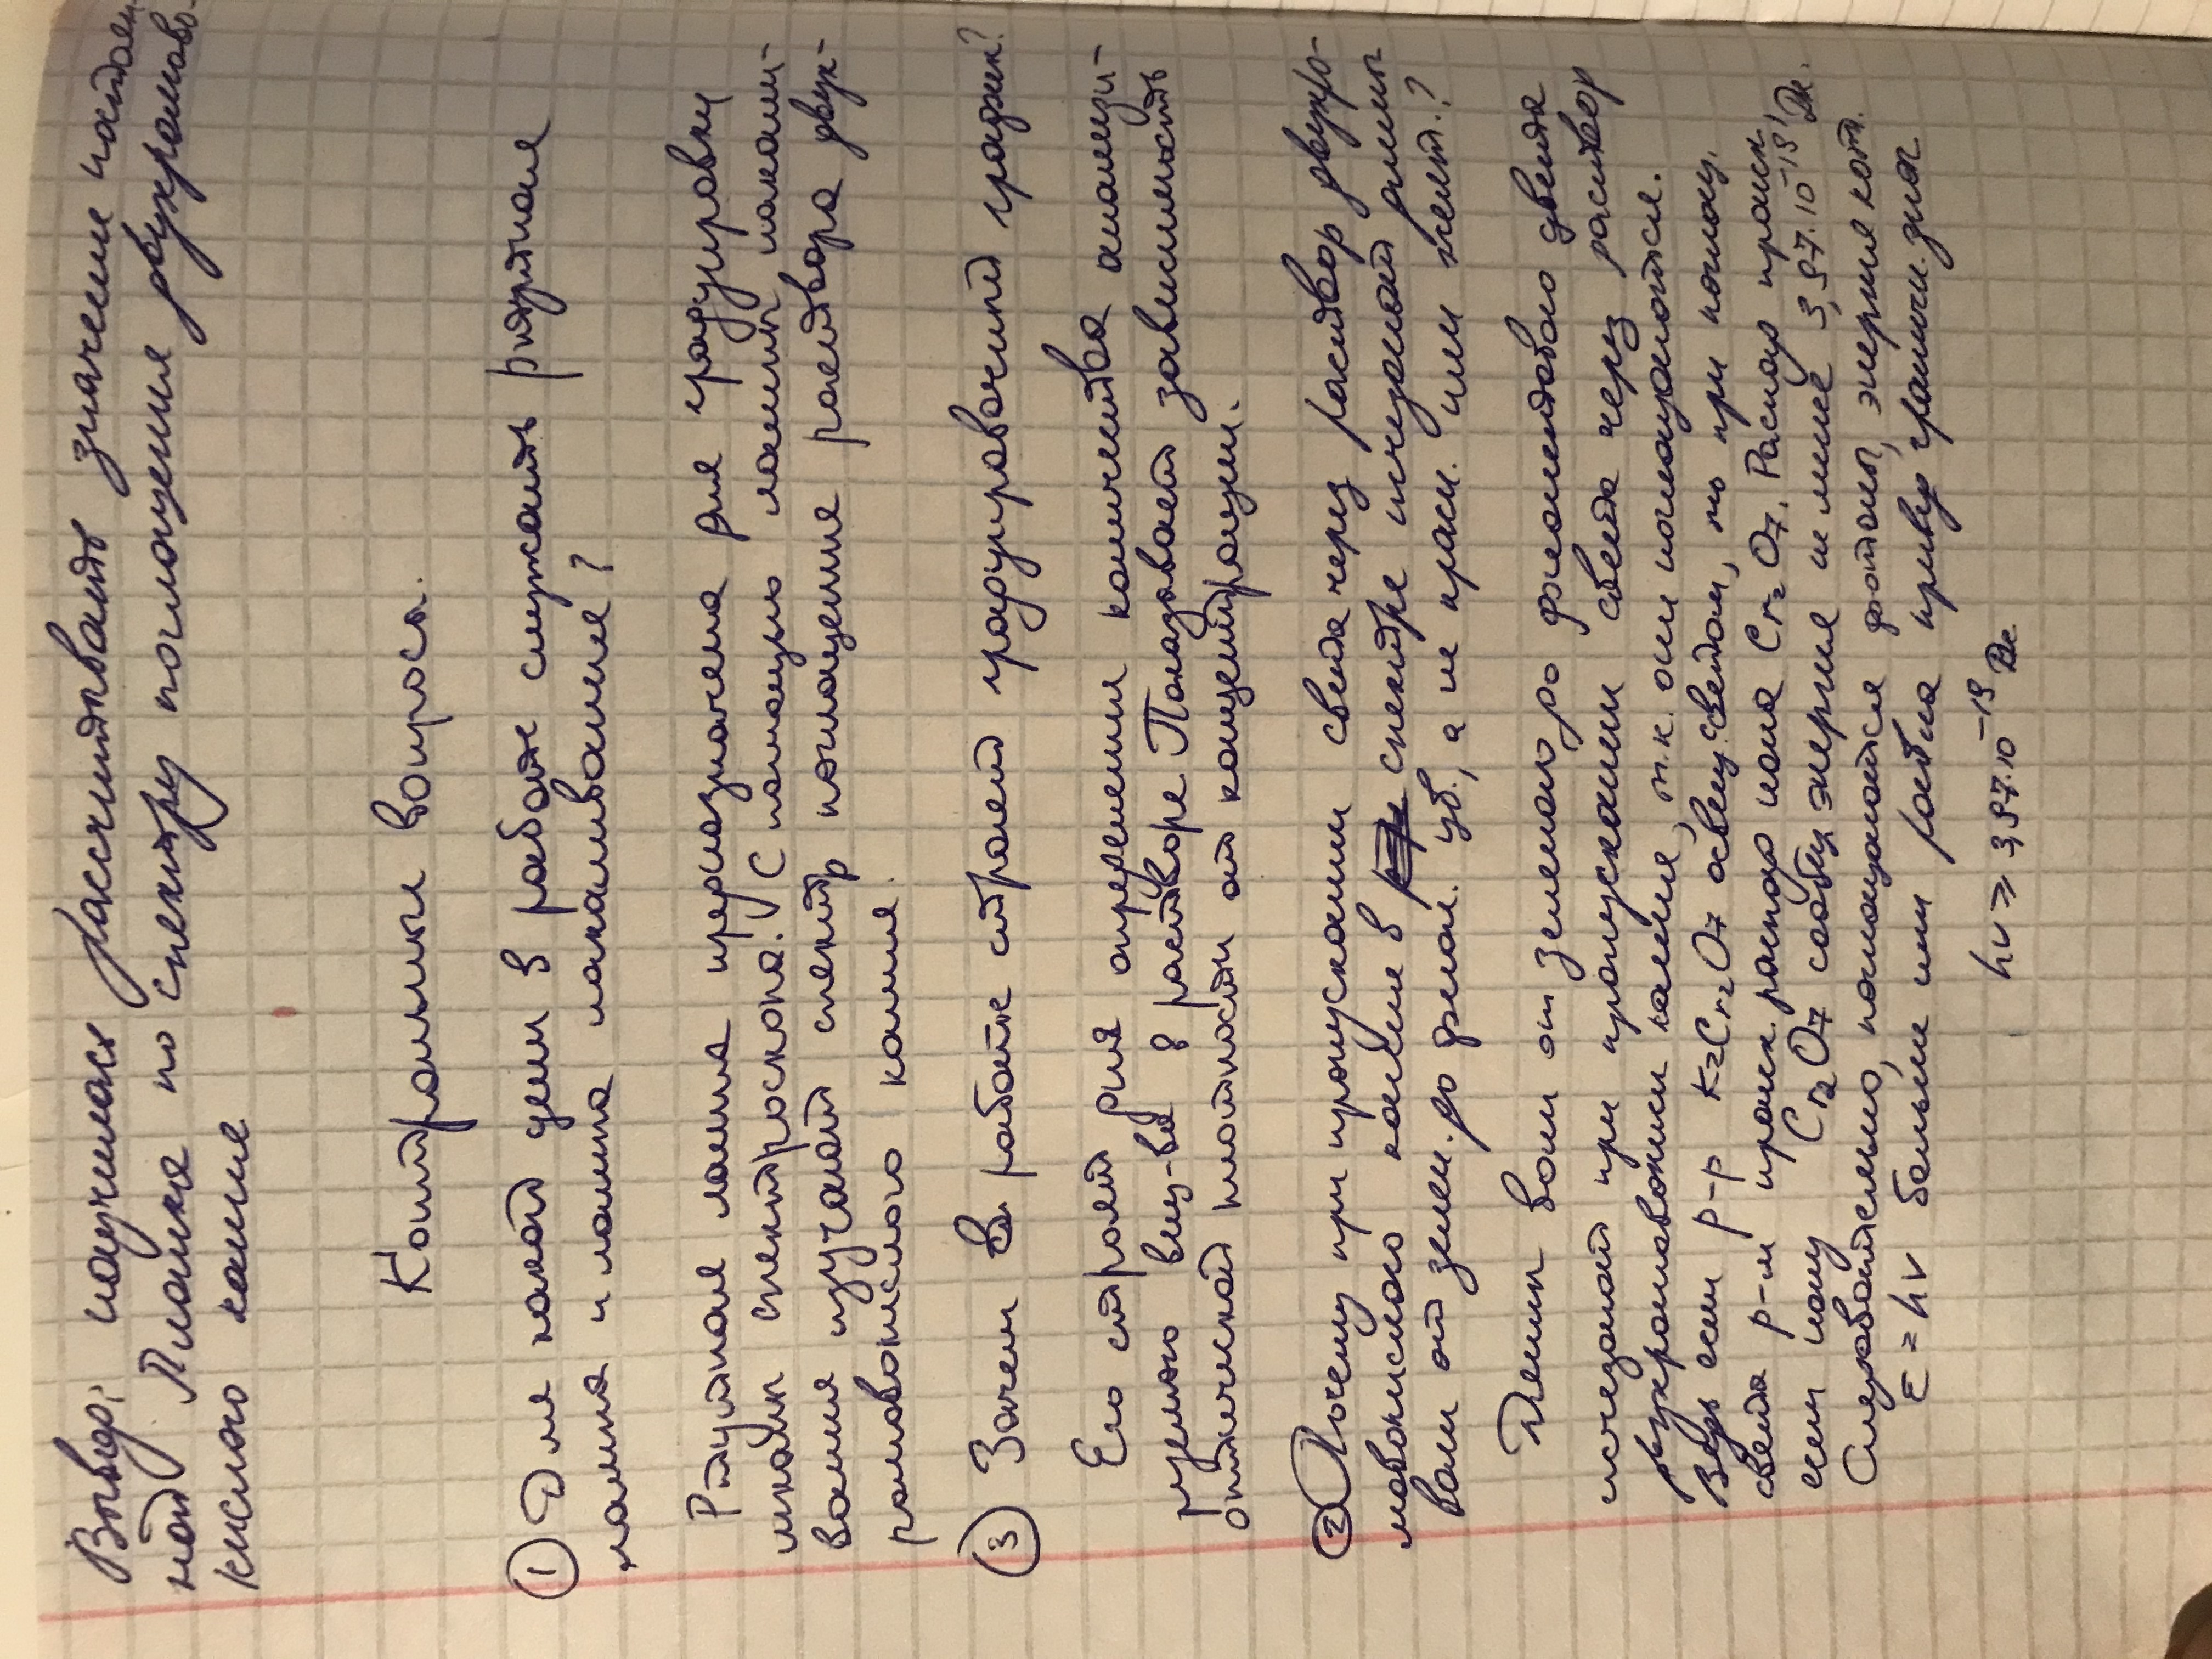 Вывод: научилась рассчитывать значение постоян-
ной Планка по спектру поглощения двухромово-
кислого калия
Контрольные вопросы.
① Для какой цели в работе служать ртутная
лампа и лампа накаливания?
Ртутная лампа предназначена для градуировки
шкалы спектроскопа. С помощью лампы накали-
вания изучают спектр поглощения раствора двух-
ромовокислого калия.
③ Зачем в работе строят градуировочный график?
Его строят для определения количества анализи-
руемого вещ-ва в растворе. Показывает зависимость
оптической плотности от концентрации.
② Почему при пропускании света через раствор двухро-
мовокислого калия в спектре исчезают длины
волн от зелен. до фиол. цв., а не красн. или желт.?
Длины волн от зеленого до фиолетового цвета
исчезают при пропускании света через раствор
двухромовокисл калия, т.к. они поглощаются.
Ведь если р-р K2Cr2O7 освещ. светом, то при поглощ.
света р-м происх. распад иона Cr2O7. Распад происх,
если иону Cr2O7 сообщ энергия не менее 3,97·10⁻¹⁹ Дж.
Следовательно, поглощаются фотоны, энергия кот.
ε = hν больше или равна привед граничн. знач
hν ≥ 3,97·10⁻¹⁹ Дж